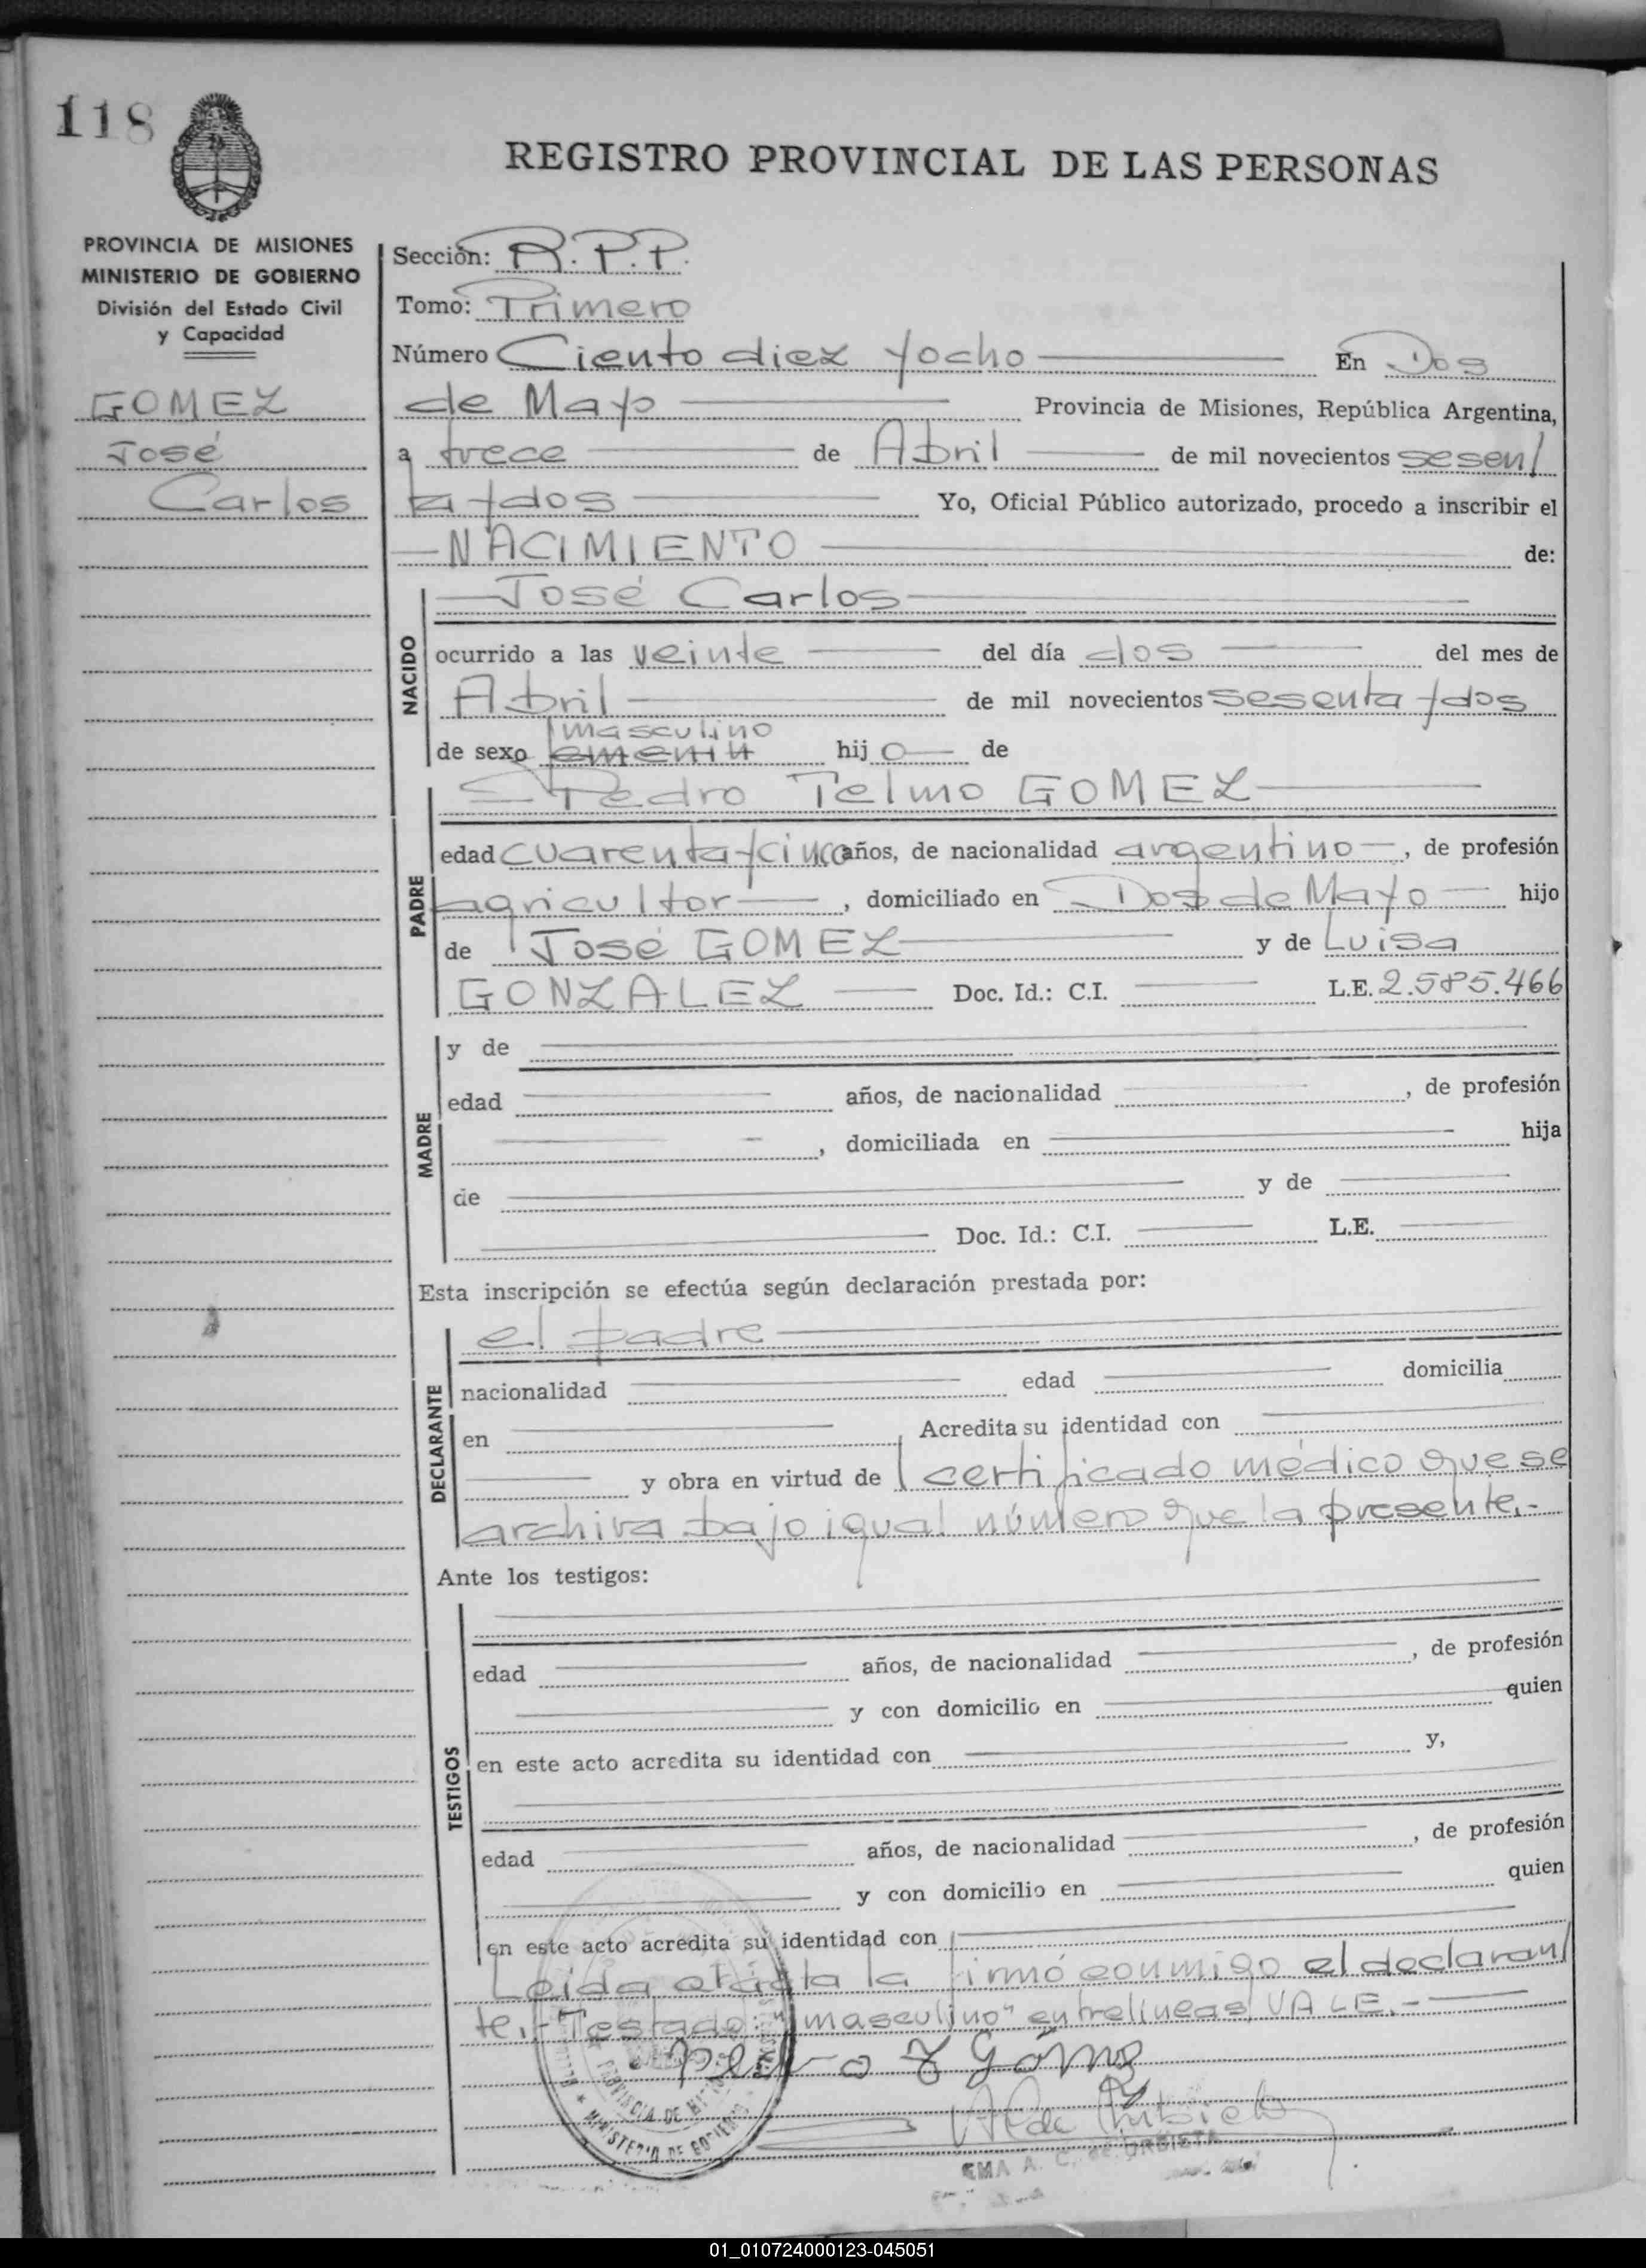 118
REGISTRO PROVINCIAL DE LAS PERSONAS
PROVINCIA DE MISIONES
MINISTERIO DE GOBIERNO
División del Estado Civil
y Capacidad
GOMEZ
José
Carlos
Sección: R.P.P.
Tomo: Primero
Número Ciento diez y ocho En Dos
de Mayo Provincia de Misiones, República Argentina,
a trece de Abril de mil novecientos sesen/
ta y dos Yo, Oficial Público autorizado, procedo a inscribir el
NACIMIENTO de:
NACIDO
José Carlos
ocurrido a las veinte del día dos del mes de
Abril de mil novecientos sesenta y dos
masculino
de sexo hijo de
PADRE
Pedro Telmo GOMEZ
edad cuarenta y cinco años, de nacionalidad argentino, de profesión
agricultor, domiciliado en Dos de Mayo hijo
de José GOMEZ y de Luisa
GONZALEZ Doc. Id.: C.I. L.E. 2.585.466
MADRE
y de
edad años, de nacionalidad , de profesión
, domiciliada en hija
de y de
Doc. Id.: C.I. L.E.
Esta inscripción se efectúa según declaración prestada por:
DECLARANTE
el padre
nacionalidad edad domicilia
en Acredita su identidad con
y obra en virtud de certificado médico que se
archiva bajo igual número que la presente.-
Ante los testigos:
TESTIGOS
edad años, de nacionalidad , de profesión
y con domicilio en quien
en este acto acredita su identidad con y,
edad años, de nacionalidad , de profesión
y con domicilio en quien
en este acto acredita su identidad con
Leida el acta la firmó conmigo el declaran/
te.- Testado: "masculino" entrelineas, VALE.-
Pedro T Gómez
PROVINCIA DE
MINISTERIO DE GOBIERNO
EMA A. C. de URBIETA
01_010724000123-045051